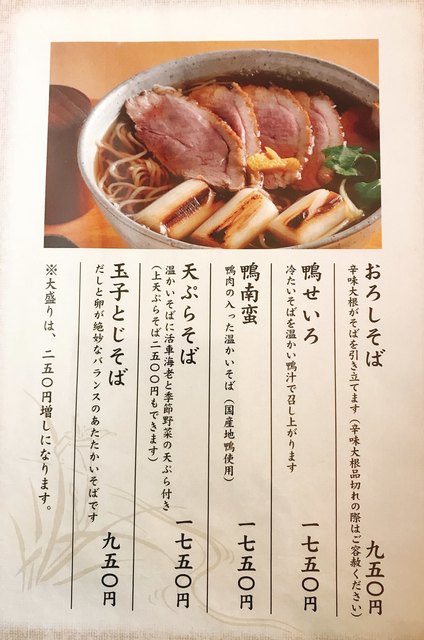 おろしそば 九五〇円
辛味大根がそばを引き立てます（辛味大根品切れの際はご容赦ください）
鴨せいろ 一七五〇円
冷たいそばを温かい鴨汁で召し上がります
鴨南蛮 一七五〇円
鴨肉の入った温かいそば（国産地鴨使用）
天ぷらそば 一七五〇円
温かいそばに活車海老と季節野菜の天ぷら付き
（上天ぷらそば二五〇〇円もできます）
玉子とじそば 九五〇円
だしと卵が絶妙なバランスのあたたかいそばです
※大盛りは、二五〇円増しになります。